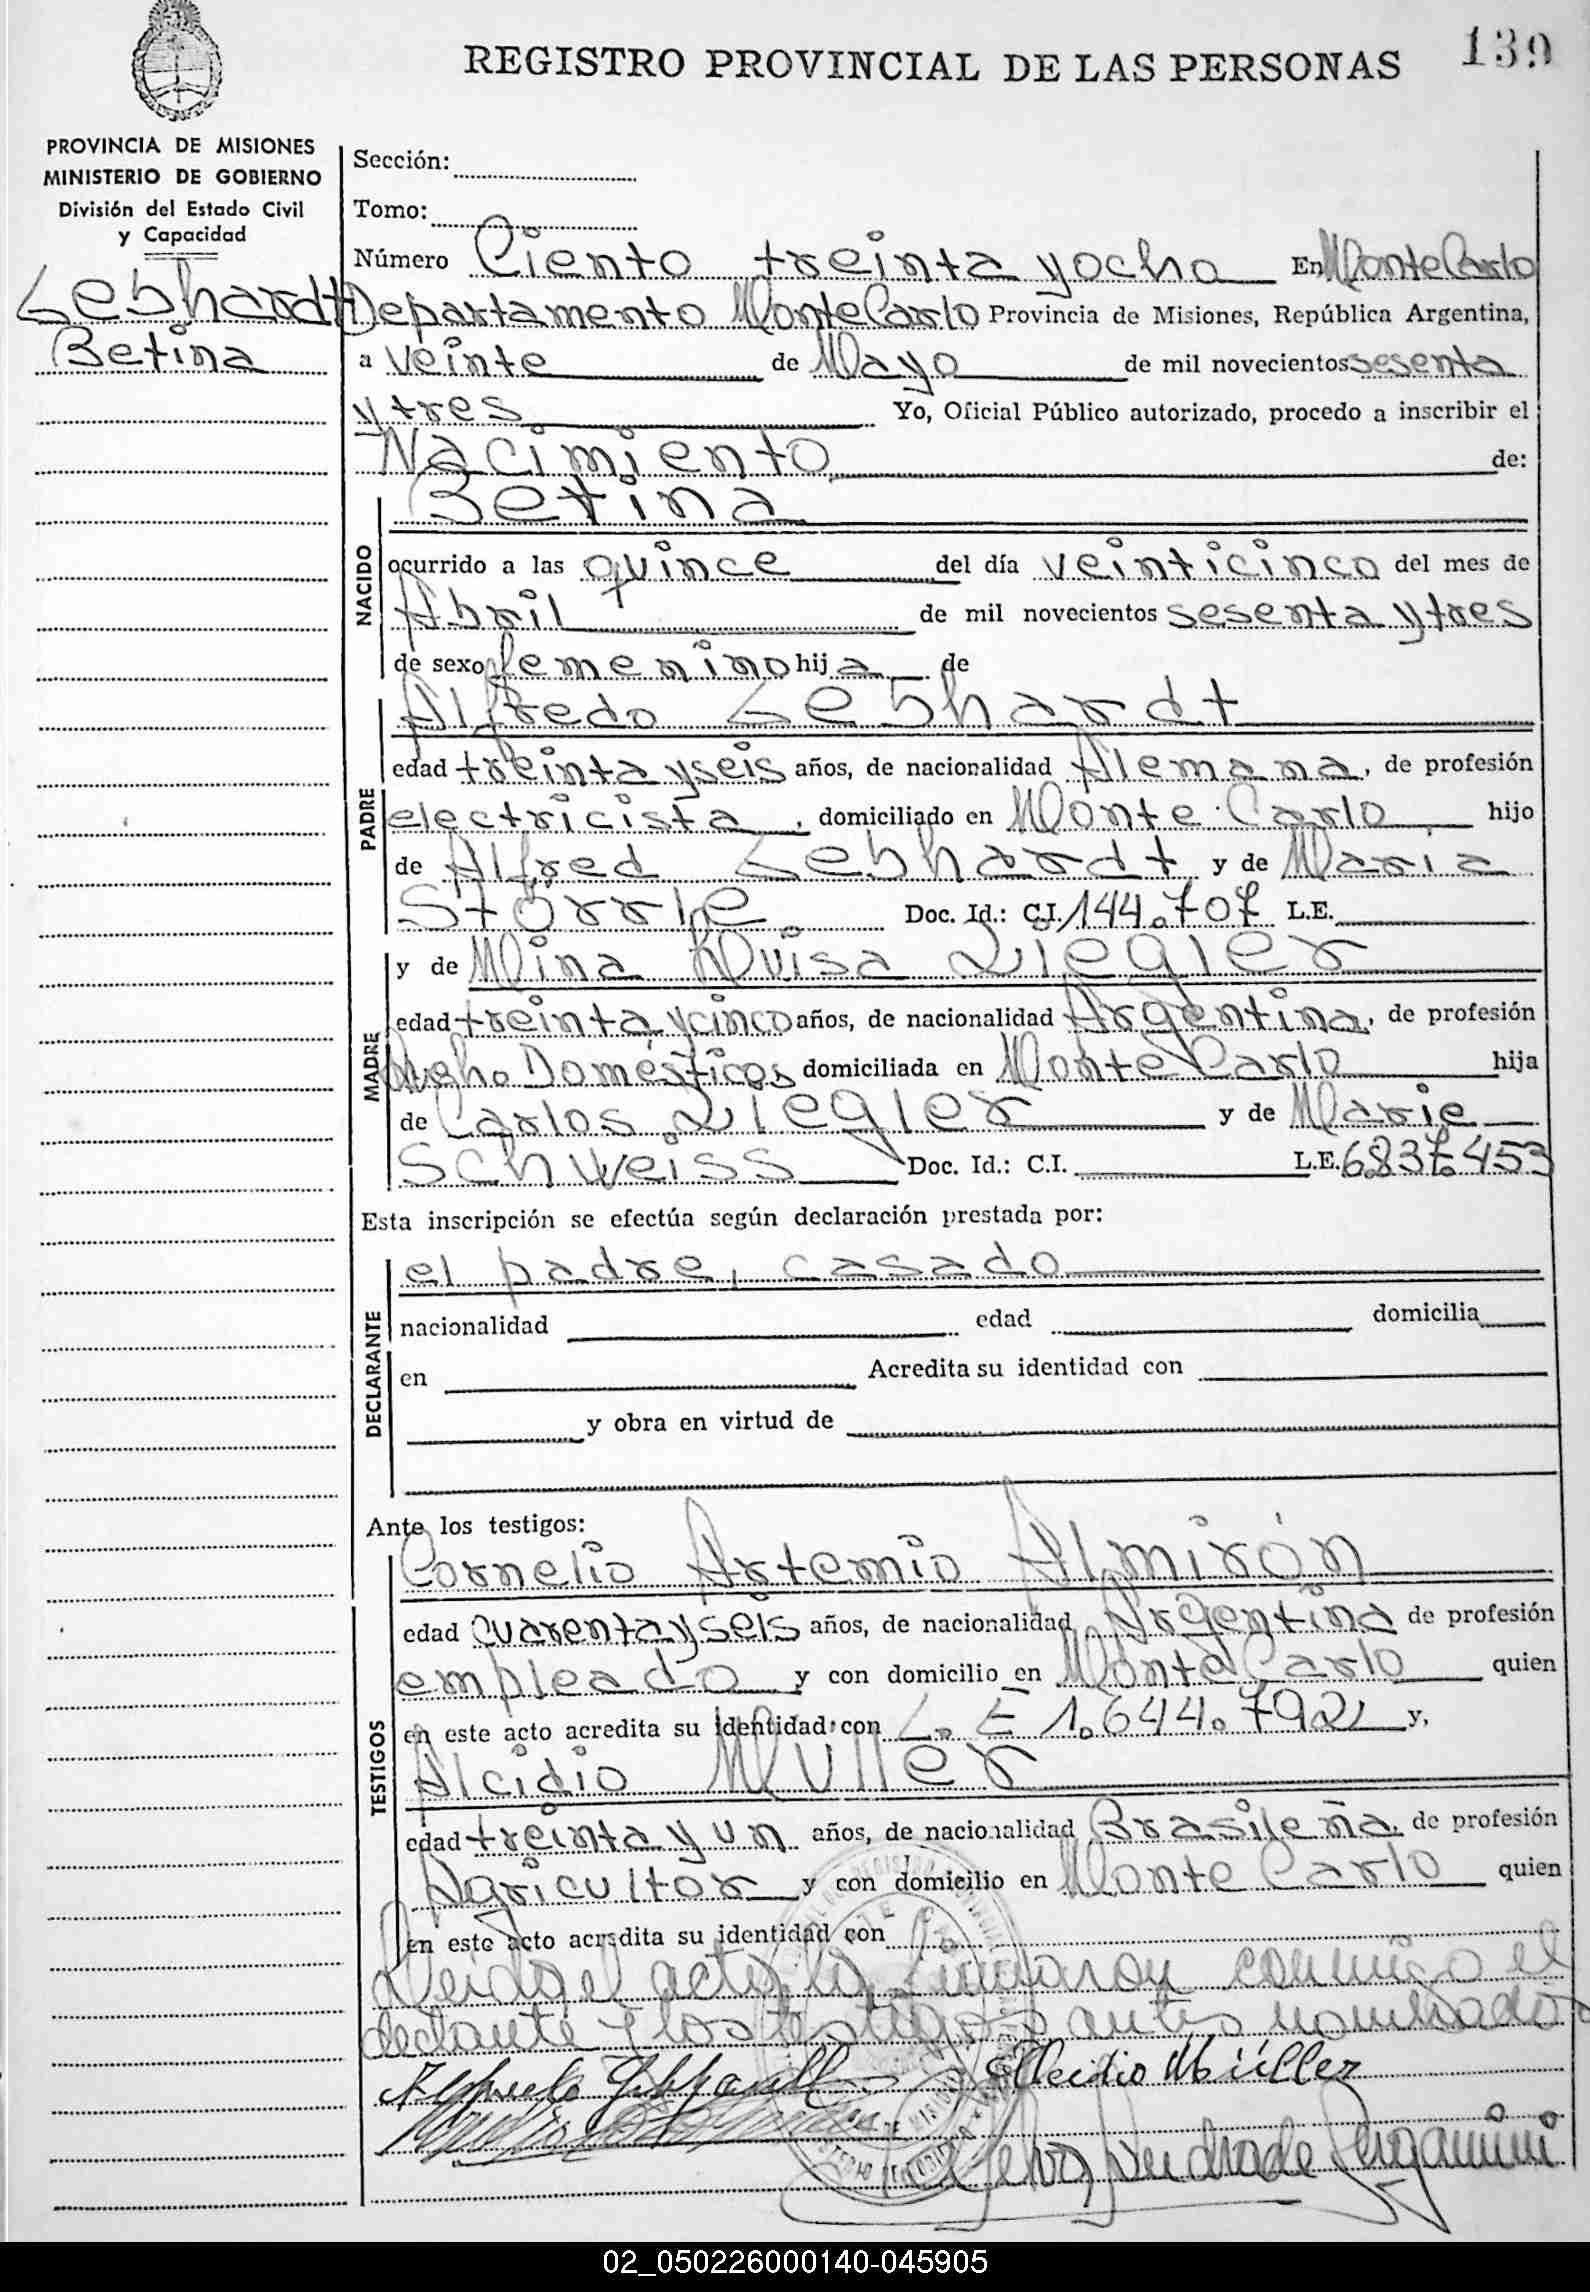 REGISTRO PROVINCIAL DE LAS PERSONAS 139
PROVINCIA DE MISIONES
MINISTERIO DE GOBIERNO
División del Estado Civil
y Capacidad
Gebhardt
Betina
Sección:
Tomo:
Número Ciento treinta y ocho En Monte Carlo
Departamento Monte Carlo Provincia de Misiones, República Argentina,
a veinte de Mayo de mil novecientos sesenta
y tres Yo, Oficial Público autorizado, procedo a inscribir el
Nacimiento de:
NACIDO
Betina
ocurrido a las quince del día veinticinco del mes de
Abril de mil novecientos sesenta y tres
de sexo femenino hija de
PADRE
Alfredo Gebhardt
edad treinta y seis años, de nacionalidad Alemana, de profesión
electricista, domiciliado en Monte Carlo, hijo
de Alfred Gebhardt y de Maria
Störrle Doc. Id.: C.I. 144.707 L.E.
MADRE
y de Mina Luisa Ziegler
edad treinta y cinco años, de nacionalidad Argentina, de profesión
Qügh. Domésticos domiciliada en Monte Carlo hija
de Carlos Ziegler y de Marie
Schweiss Doc. Id.: C.I. L.E. 6837.453
Esta inscripción se efectúa según declaración prestada por:
DECLARANTE
el padre, casado
nacionalidad edad domicilia
en Acredita su identidad con
y obra en virtud de
Ante los testigos:
TESTIGOS
Cornelio Artemio Almirón
edad cuarenta y seis años, de nacionalidad Argentina de profesión
empleado y con domicilio en Monte Carlo quien
en este acto acredita su identidad con L. E 1.644.792 y,
Alcidio Muller
edad treinta y un años, de nacionalidad Brasileña, de profesión
Agricultor y con domicilio en Monte Carlo quien
en este acto acredita su identidad con
Leida el acta, la firmaron conmigo el
declante y los testigos antes nombrados
Alfredo Gebhardt Alcidio Müller
02_050226000140-045905